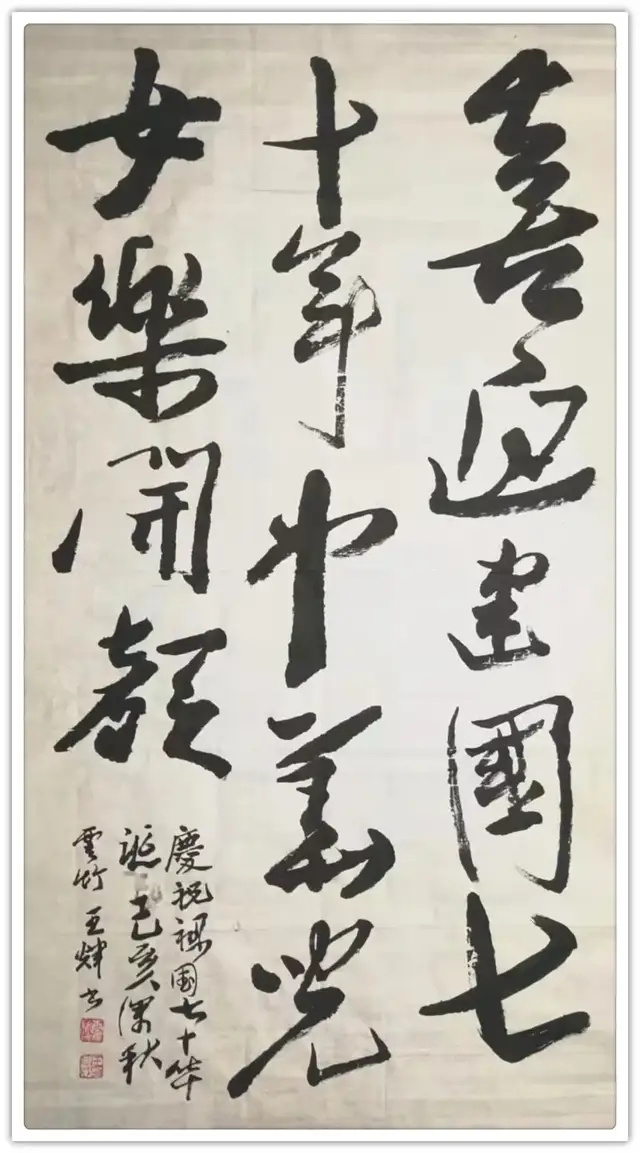 喜迎建國七
十年中華兒
女樂開顏
慶祝祖國七十华
誕己亥深秋
雲竹王輝书